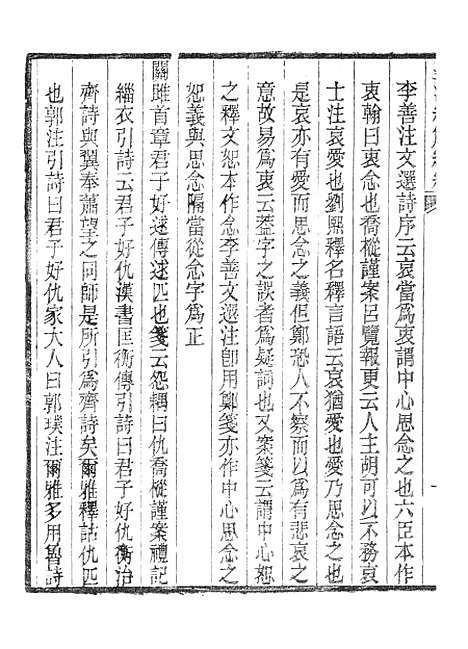 李善注文選詩序云哀當爲衷謂中心思念之也六臣本作
衷翰曰衷念也喬樅謹案呂覽報更云人主胡可以不務哀
士注哀愛也劉熙釋名釋言語云哀猶愛也愛乃思念之也
是哀亦有愛而思念之義但鄭恐人不察而以爲有悲哀之
意故易爲衷云蓋字之誤者爲疑詞也又案箋云謂中心恕
之釋文恕本作念李善文選注卽用鄭箋亦作中心思念之
恕義與思念隔當從念字爲正
關雎首章君子好逑傳逑匹也箋云怨耦曰仇喬樅謹案禮記
緇衣引詩云君子好仇漢書匡衡傳引詩曰君子好仇衡治
齊詩與翼奉蕭望之同師是所引爲齊詩矣爾雅釋詁仇匹
也郭注引詩曰君子好仇家大人曰郭璞注爾雅多用魯詩